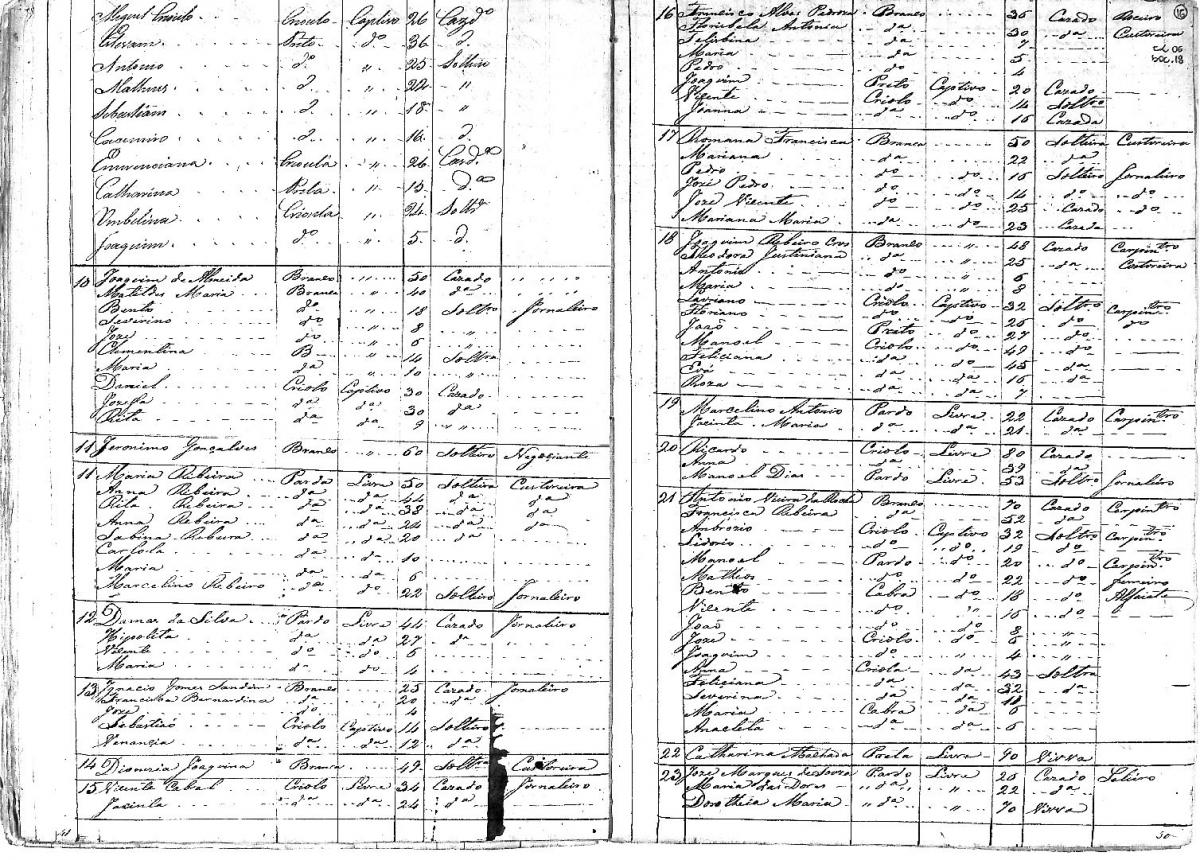 Miguel Crioulo Crioulo Captivo 26 Cazdo
Estevam Preto do 36 d.
Antonio do " 25 Soltro
Matheus d. " 22 "
Sebastiam d. " 18 "
Casemiro d. " 16 d.
Emerenciana Crioula " 26 Cazda
Catharina Preta " 15 da
Umbelina Crioula " 24 Soltra
Joaquim do " 5 d.
10 Joaquim de Almeida Branco " 50 Cazado " " "
Matildes Maria Branca " 40 da " " "
Bento do " 18 Soltro Jornaleiro
Severino do " 8 "
José do " 6 "
Clementina B " 14 Soltra
Maria da " 10 "
Daniel Criolo Captivo 30 Cazado
Jozefa da da 30 da
Rita da da 9 " "
11 Jeronimo Gonçalves Branco " 60 Solteiro Negociante
11 Maria Ribeira Parda Livre 50 Solteira Custoreira
Anna Ribeira da da 44 da da
Rita Ribeira da da 38 da da
Anna Ribeira da da 24 da da
Sabina Ribeira da da 20 da
Carlota da 10
Maria da da 6
Marcelino Ribeiro do do 22 Solteiro Jornaleiro
12 Damaz da Silva Pardo Livre 44 Cazado Jornaleiro
Hipolita da da 27 da
Vicente do do 6
Maria da do 4
13 Ignacio Gomes Sandim Branco 25 Cazado Jornaleiro
Francisca Bernardina da 20 da
José do 4
Sebastião Criolo Captivo 14 Solteiro
Venancia da da 12 da
14 Dionizia Joaquina Branca 49 Soltra Custoreira
15 Vicente Cabal Criolo Livre 34 Cazado Jornaleiro
Jacinta da 24 da
16 Francisco Alves Pedroza Branco 35 Cazado Roceiro
Floribela Antonia da 30 da Custoreira
Felisbina da 7
Maria da 5
Pedro do 4
Joaquim Preto Captivo 20 Cazado
Vicente Criolo do 14 Soltro
Joanna da da 16 Cazada
16
cd 06
doc.18
17 Romana Francisca Branca 50 Solteira Custoreira
Mariana da 22 da
Pedro do 16 Solteiro Jornaleiro
José Pedro do 14 do do
José Vicente do 25 Cazado do
Mariana Maria da 23 Cazada
18 Joaquim Ribeiro Branco " 48 Cazado Carpintro
Theodora Justiniana da " 25 da Custoreira
Antonio do " 6
Maria da " 8
Lauriano Criolo Captivo 32 Soltro Carpintro
Floriano do do 26 do do
João Preto do 27 do
Manoel Criolo do 49 do
Feliciana da da 45 da
Eva da da 16 da
Roza da da 7
19 Marcelino Antonio Pardo Livre 22 Cazado Carpintro
Jacinta Maria da da 21 da
20 Ricardo Criolo Livre 80 Cazado
Anna da 39 da
Manoel Dias Pardo Livre 53 Soltro Jornaleiro
21 Antonio Vieira da Rocha Branco 70 Cazado Carpintro
Francisca Ribeira da 52 da
Ambrozio Criolo Captivo 32 Soltro Carpintro
Lidorio do do 19 do
Manoel Pardo do 20 do Carpintro
Matheos do do 22 do Ferreiro
Bento Cabra do 18 do Alfiate
Vicente do " 16 do
João do do 8 "
José Criolo do 6 "
Joaquim do " 4 "
Anna Criola da 43 Soltra
Feliciana da da 32 da
Severina da da 11
Maria Cabra da 6
Anacleta da da 6
22 Catharina Machada Preta Livre 90 Viuva
23 José Marques de Souza Pardo Livre 26 Cazado Seleiro
Maria das Dores da " 22 da
Dorotheia Maria da " 70 Viuva
50